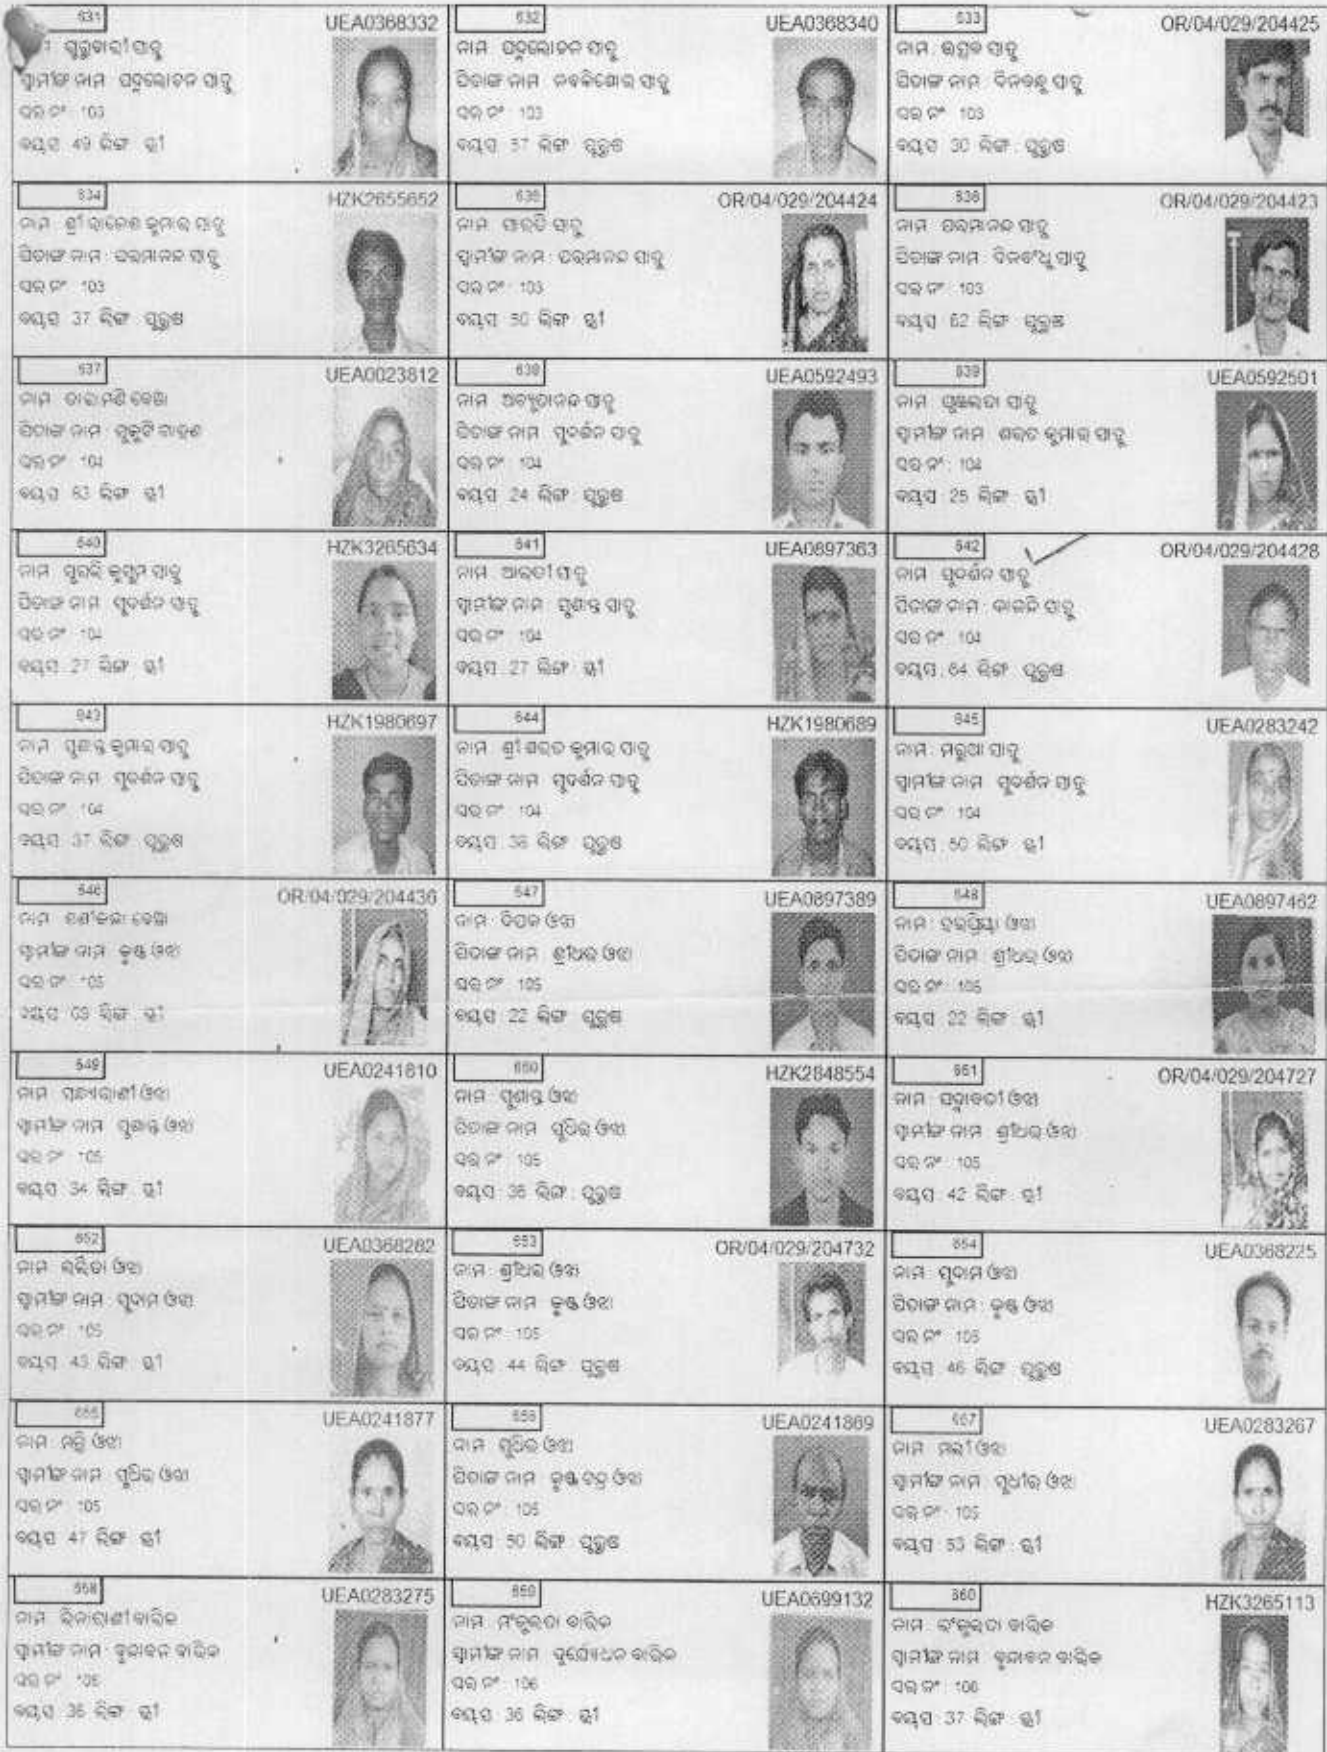 631 UEA0368332
ସ୍ୱାମୀଙ୍କ ନାମ ପଦ୍ମଲୋଚନ ସାହୁ
ଘର ନଂ 103
ବୟସ 49 ଲିଙ୍ଗ ସ୍ତ୍ରୀ
632 UEA0368340
ନାମ ପଦ୍ମଲୋଚନ ସାହୁ
ପିତାଙ୍କ ନାମ ନବକିଶୋର ସାହୁ
ଘର ନଂ 103
ବୟସ 57 ଲିଙ୍ଗ ପୁରୁଷ
633 OR/04/029/204425
ନାମ ଉଦ୍ଧବ ସାହୁ
ପିତାଙ୍କ ନାମ ଦିନବନ୍ଧୁ ସାହୁ
ଘର ନଂ 103
ବୟସ 30 ଲିଙ୍ଗ : ପୁରୁଷ
634 HZK2655652
ନାମ ଶ୍ରୀ ରାଜେଶ କୁମାର ସାହୁ
ପିତାଙ୍କ ନାମ : ପରମାନନ୍ଦ ସାହୁ
ଘର ନଂ 103
ବୟସ 37 ଲିଙ୍ଗ ପୁରୁଷ
635 OR/04/029/204424
ନାମ ସାବତି ସାହୁ
ସ୍ୱାମୀଙ୍କ ନାମ : ପରମାନନ୍ଦ ସାହୁ
ଘର ନଂ 103
ବୟସ 50 ଲିଙ୍ଗ ସ୍ତ୍ରୀ
636 OR/04/029/204423
ନାମ ପରମାନନ୍ଦ ସାହୁ
ପିତାଙ୍କ ନାମ : ଦିନବଂଧୁ ସାହୁ
ଘର ନଂ 103
ବୟସ 62 ଲିଙ୍ଗ ପୁରୁଷ
637 UEA0023812
ନାମ ତାରାମଣି ବେଵା
ପିତାଙ୍କ ନାମ
ଘର ନଂ 104
ବୟସ 63 ଲିଙ୍ଗ ସ୍ତ୍ରୀ
638 UEA0592493
ନାମ ଅଚ୍ୟୁତାନନ୍ଦ ସାହୁ
ପିତାଙ୍କ ନାମ ସୁଦର୍ଶନ ସାହୁ
ଘର ନଂ 104
ବୟସ 24 ଲିଙ୍ଗ ପୁରୁଷ
639 UEA0592501
ନାମ ପୁଷ୍ପଲତା ସାହୁ
ସ୍ୱାମୀଙ୍କ ନାମ ଶରତ କୁମାର ସାହୁ
ଘର ନଂ 104
ବୟସ 25 ଲିଙ୍ଗ ସ୍ତ୍ରୀ
640 HZK3265634
ନାମ ସୁରଭି କୁସୁମ ସାହୁ
ପିତାଙ୍କ ନାମ ସୁଦର୍ଶନ ସାହୁ
ଘର ନଂ 104
ବୟସ 27 ଲିଙ୍ଗ ସ୍ତ୍ରୀ
641 UEA0897363
ନାମ ଆରତୀ ସାହୁ
ସ୍ୱାମୀଙ୍କ ନାମ : ସୁଶାନ୍ତ ସାହୁ
ଘର ନଂ 104
ବୟସ 27 ଲିଙ୍ଗ ସ୍ତ୍ରୀ
642 OR/04/029/204428
ନାମ ସୁଦର୍ଶନ ସାହୁ
ପିତାଙ୍କ ନାମ : କାଳନ୍ଦି ସାହୁ
ଘର ନଂ 104
ବୟସ 64 ଲିଙ୍ଗ ପୁରୁଷ
643 HZK1980697
ନାମ ସୁଶାନ୍ତ କୁମାର ସାହୁ
ପିତାଙ୍କ ନାମ ସୁଦର୍ଶନ ସାହୁ
ଘର ନଂ 104
ବୟସ 37 ଲିଙ୍ଗ ପୁରୁଷ
644 HZK1980689
ନାମ ଶ୍ରୀ ଶରତ କୁମାର ସାହୁ
ପିତାଙ୍କ ନାମ ସୁଦର୍ଶନ ସାହୁ
ଘର ନଂ 104
ବୟସ 38 ଲିଙ୍ଗ ପୁରୁଷ
645 UEA0283242
ନାମ : ମରୁଆ ସାହୁ
ସ୍ୱାମୀଙ୍କ ନାମ ସୁଦର୍ଶନ ସାହୁ
ଘର ନଂ 104
ବୟସ 60 ଲିଙ୍ଗ ସ୍ତ୍ରୀ
646 OR/04/029/204436
ନାମ ଶଶୀକଳା ବେଵା
ସ୍ୱାମୀଙ୍କ ନାମ କୃଷ୍ଣ ଓଝା
ଘର ନଂ 105
ବୟସ 69 ଲିଙ୍ଗ ସ୍ତ୍ରୀ
647 UEA0897389
ନାମ : ଦିପକ ଓଝା
ପିତାଙ୍କ ନାମ ଶ୍ରୀଧର ଓଝା
ଘର ନଂ 105
ବୟସ 22 ଲିଙ୍ଗ ପୁରୁଷ
648 UEA0897462
ନାମ : ହରପ୍ରିୟା ଓଝା
ପିତାଙ୍କ ନାମ : ଶ୍ରୀଧର ଓଝା
ଘର ନଂ 105
ବୟସ 22 ଲିଙ୍ଗ ସ୍ତ୍ରୀ
649 UEA0241810
ନାମ ସନ୍ଧ୍ୟାରାଣୀ ଓଝା
ସ୍ୱାମୀଙ୍କ ନାମ ସୁଶାନ୍ତ ଓଝା
ଘର ନଂ 105
ବୟସ 34 ଲିଙ୍ଗ ସ୍ତ୍ରୀ
650 HZK2848554
ନାମ ସୁଶାନ୍ତ ଓଝା
ପିତାଙ୍କ ନାମ ସୁଧିର ଓଝା
ଘର ନଂ 105
ବୟସ 36 ଲିଙ୍ଗ : ପୁରୁଷ
651 OR/04/029/204727
ନାମ ପଦ୍ମାବତୀ ଓଝା
ସ୍ୱାମୀଙ୍କ ନାମ ଶ୍ରୀଧର ଓଝା
ଘର ନଂ 105
ବୟସ 42 ଲିଙ୍ଗ ସ୍ତ୍ରୀ
652 UEA0368282
ନାମ ଲଳିତା ଓଝା
ସ୍ୱାମୀଙ୍କ ନାମ ସୁଦାମ ଓଝା
ଘର ନଂ 105
ବୟସ 43 ଲିଙ୍ଗ ସ୍ତ୍ରୀ
653 OR/04/029/204732
ନାମ : ଶ୍ରୀଧର ଓଝା
ପିତାଙ୍କ ନାମ କୃଷ୍ଣ ଓଝା
ଘର ନଂ 105
ବୟସ 44 ଲିଙ୍ଗ ପୁରୁଷ
654 UEA0368225
ନାମ ସୁଦାମ ଓଝା
ପିତାଙ୍କ ନାମ : କୃଷ୍ଣ ଓଝା
ଘର ନଂ 105
ବୟସ 46 ଲିଙ୍ଗ ପୁରୁଷ
655 UEA0241877
ନାମ ମଲ୍ଲି ଓଝା
ସ୍ୱାମୀଙ୍କ ନାମ ସୁଧିର ଓଝା
ଘର ନଂ 105
ବୟସ 47 ଲିଙ୍ଗ ସ୍ତ୍ରୀ
656 UEA0241869
ନାମ ସୁଧିର ଓଝା
ପିତାଙ୍କ ନାମ କୃଷ୍ଣ ଚନ୍ଦ୍ର ଓଝା
ଘର ନଂ 105
ବୟସ 50 ଲିଙ୍ଗ ପୁରୁଷ
657 UEA0283267
ନାମ ମଲ୍ଲୀ ଓଝା
ସ୍ୱାମୀଙ୍କ ନାମ ସୁଧୀର ଓଝା
ଘର ନଂ 105
ବୟସ 53 ଲିଙ୍ଗ ସ୍ତ୍ରୀ
658 UEA0283275
ନାମ ଲିନାରାଣୀ ବାରିକ
ସ୍ୱାମୀଙ୍କ ନାମ ବୃନ୍ଦାବନ ବାରିକ
ଘର ନଂ 106
ବୟସ 36 ଲିଙ୍ଗ ସ୍ତ୍ରୀ
659 UEA0699132
ନାମ ମଂଜୁଲତା ବାରିକ
ସ୍ୱାମୀଙ୍କ ନାମ ଦୁର୍ଯ୍ୟୋଧନ ବାରିକ
ଘର ନଂ 106
ବୟସ 36 ଲିଙ୍ଗ ସ୍ତ୍ରୀ
660 HZK3265113
ନାମ ବାରିକ
ସ୍ୱାମୀଙ୍କ ନାମ ବୃନ୍ଦାବନ ବାରିକ
ଘର ନଂ 106
ବୟସ 37 ଲିଙ୍ଗ ସ୍ତ୍ରୀ